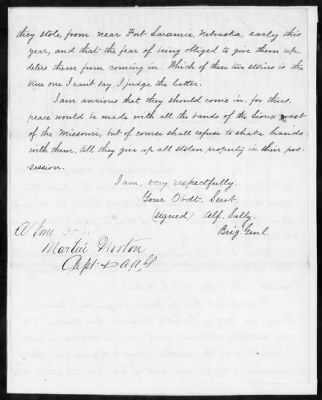 they stole from near Fort Laramie, Nebraska, early this
year, and that the fear of being obliged to give them up,
deters them from coming in. Which of these two stories is the
true one I can't say, I judge the latter.
I am anxious that they should come in, for thus
peace would be made with all the bands of the Sioux west
of the Missouri, but of course shall refuse to shake hands
with them, till they give up all stolen property in their pos-
session.
I am, very respectfully,
Your Obdt. Servt.
(signed) Alf. Sully.
Brig. Genl.
A true
Martin Norton
Capt & A.A.G